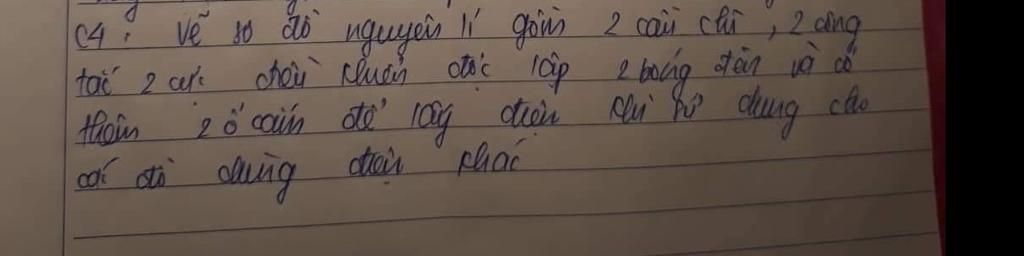 C4: Vẽ sơ đồ nguyên lí gồm 2 cầu chì, 2 công
tắc 2 cực điều khiển độc lập 2 bóng đèn và có
thêm 2 ổ cắm để lấy điện khi sử dụng cho
các đồ dùng điện khác